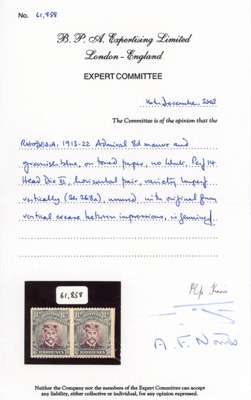 No. 61,858
B. P. A. Expertising Limited
London - England
EXPERT COMMITTEE
December, 2003
The Committee is of the opinion that the
Rhodesia, 1913-22 Admiral 8d mauve and
greenish blue, on toned paper, no Wmk, Perf 14
Head Die II, horizontal pair, variety imperf
vertically (SG. 268a), unused, with original gum
vertical crease between impressions, is genuine
61,858
Neither the Company nor the members of the Expert Committee can accept
any liability, either collective or individual, for any opinion expressed.